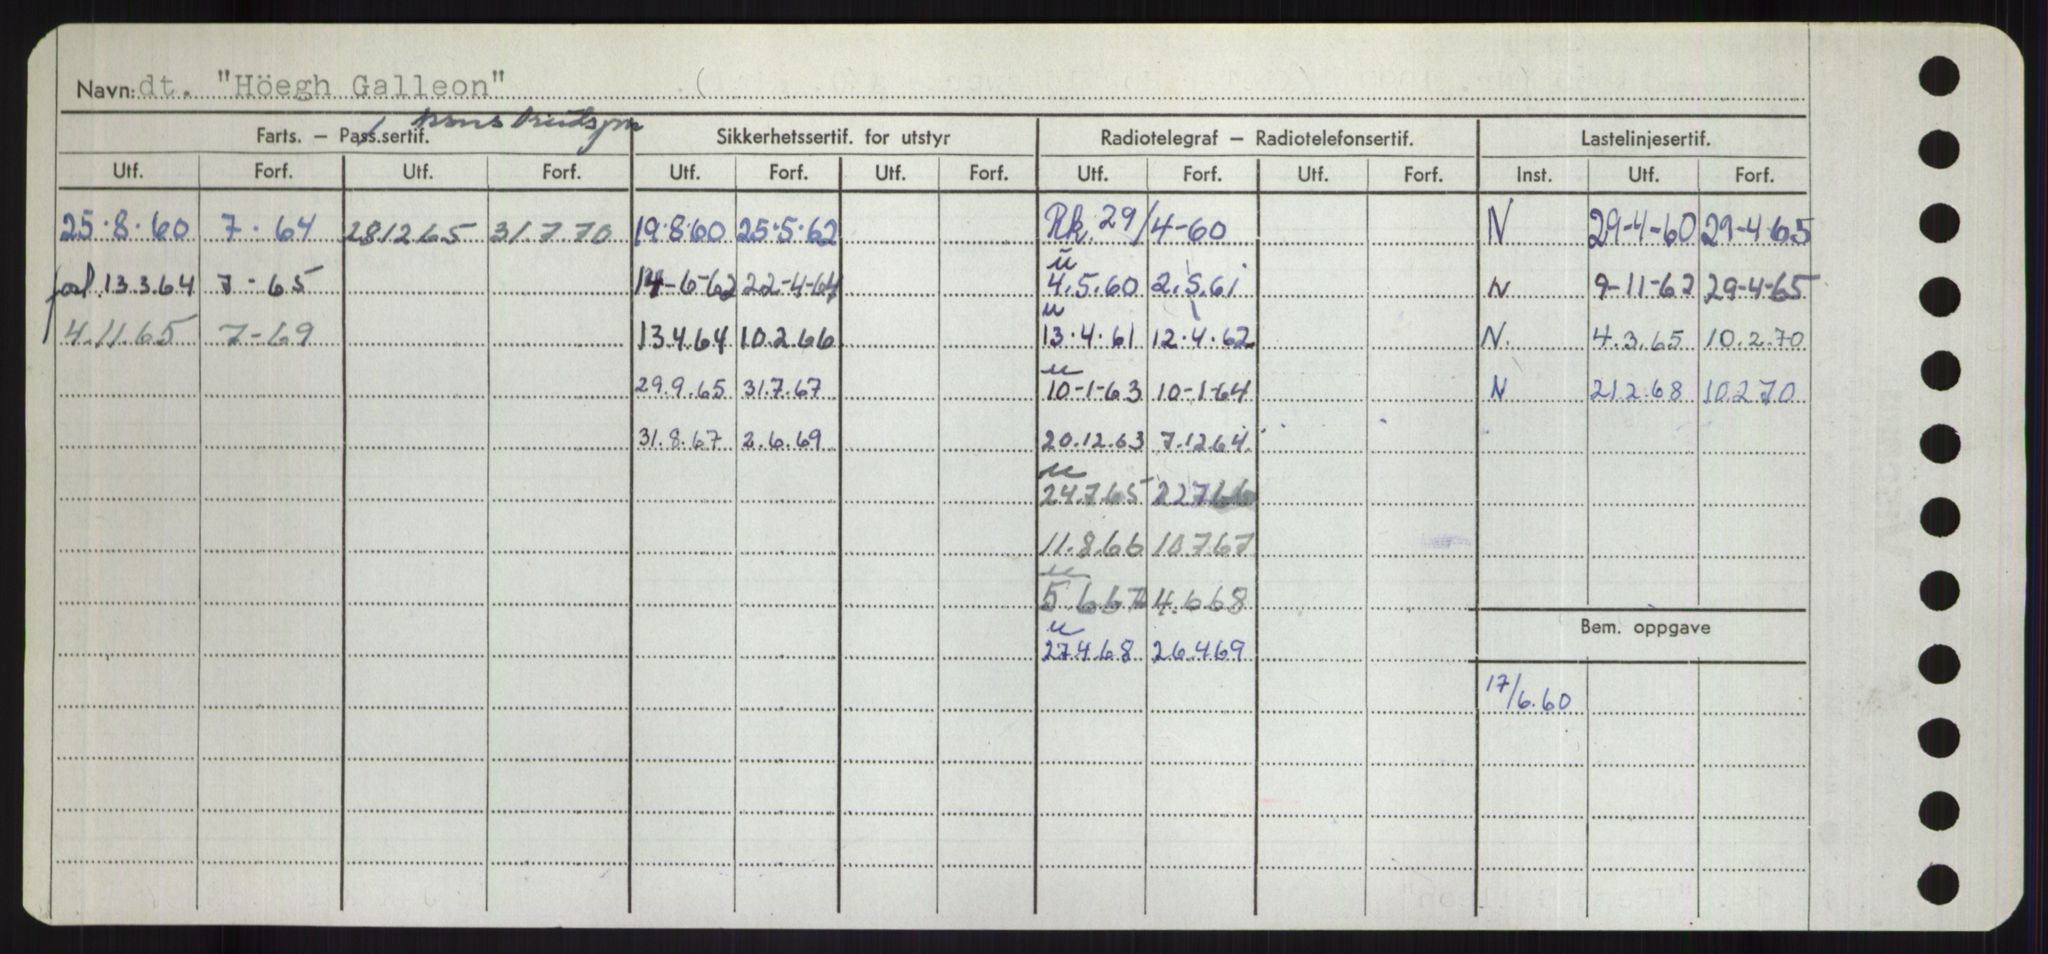 Navn: dt. "Höegh Galleon"
Farts. – Pass.sertif. Sikkerhetssertif. for utstyr Radiotelegraf – Radiotelefonsertif. Lastelinjesertif.
Utf. Forf. Utf. Forf. Utf. Forf. Utf. Forf. Utf. Forf. Utf. Forf. Inst. Utf. Forf.
25.8.60 7.64 281265 31.7.70 19.8.60 25.5.62 Rk 29/4-60 N 29-4-60 29-4-65
forl. 13.3.64 7-65 14-6-62 22-4-64 u 4.5.60 2.5.61 N 9-11-62 29-4-65
4.11.65 7-69 13.4.64 10.2.66 u 13.4.61 12.4.62 N. 4.3.65 10.2.70
29.9.65 31.7.67 u 10-1-63 10-1-64 N 212.68 10270
31.8.67 2.6.69 20.12.63 7.1264
u 24.7.65 22766
11.8.66 10767
u 5667 4.668
Bem. oppgave
u 27468 26469
17/6.60